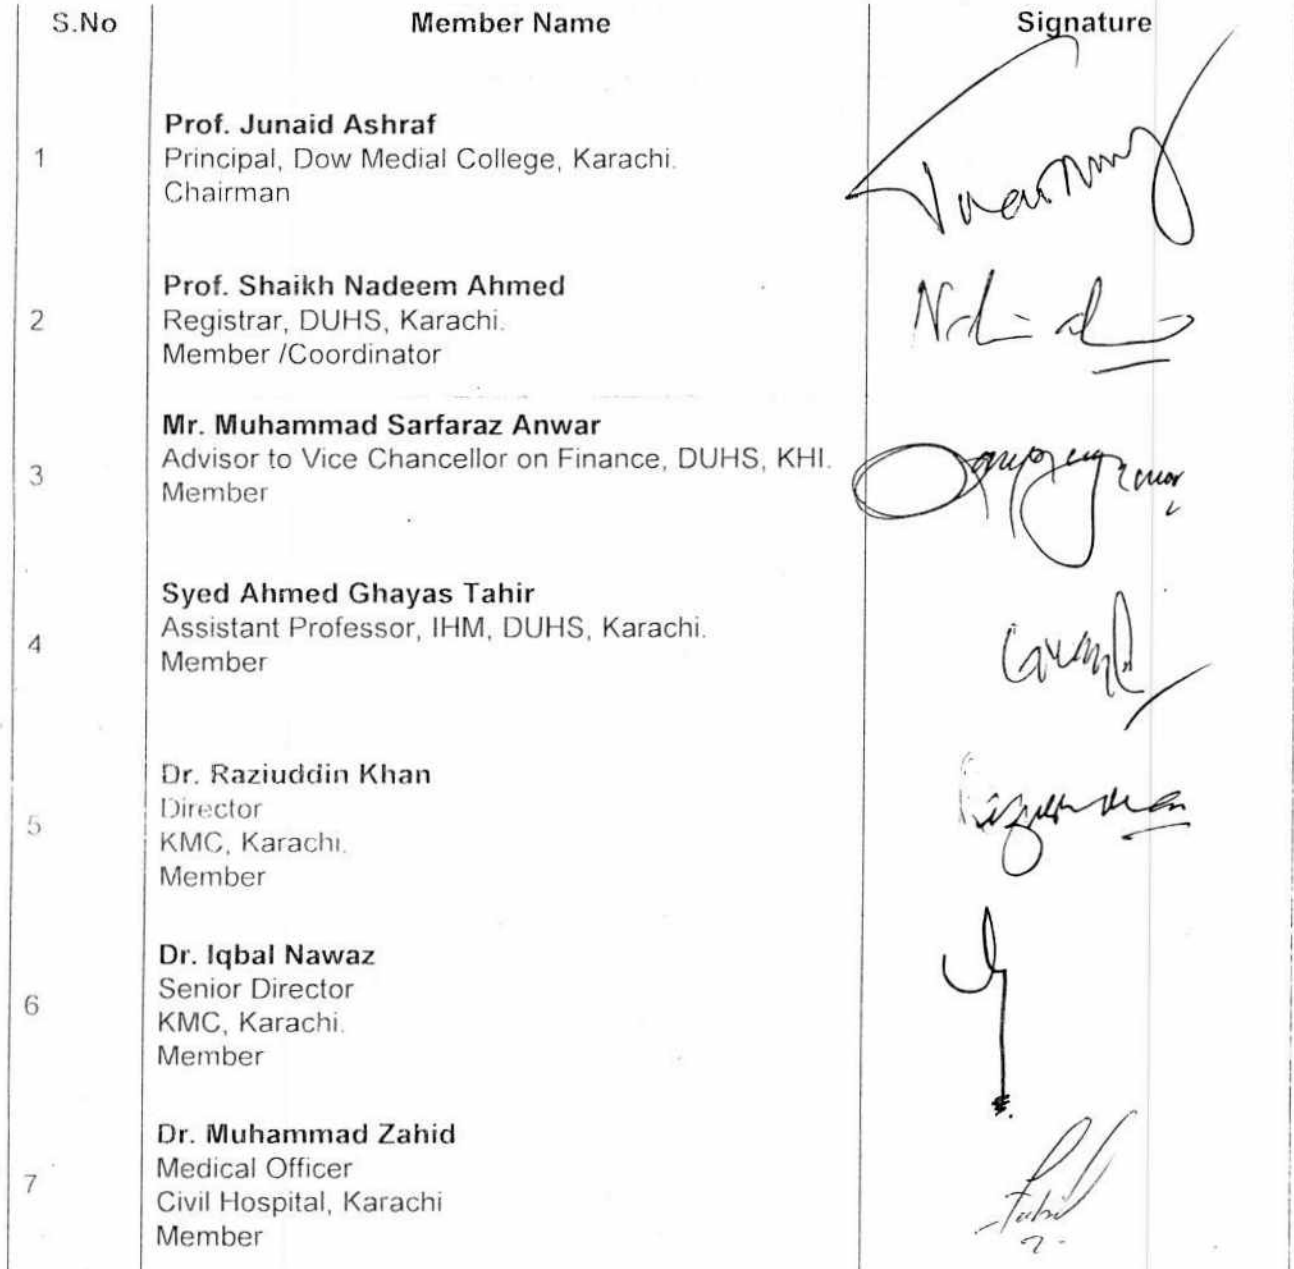 S.No Member Name Signature
Prof. Junaid Ashraf
1 Principal, Dow Medial College, Karachi.
Chairman
Prof. Shaikh Nadeem Ahmed
2 Registrar, DUHS, Karachi.
Member /Coordinator
Mr. Muhammad Sarfaraz Anwar
Advisor to Vice Chancellor on Finance, DUHS, KHI.
3 Member
Syed Ahmed Ghayas Tahir
Assistant Professor, IHM, DUHS, Karachi.
4 Member
Dr. Raziuddin Khan
Director
5 KMC, Karachi.
Member
Dr. Iqbal Nawaz
Senior Director
6 KMC, Karachi.
Member
Dr. Muhammad Zahid
Medical Officer
7 Civil Hospital, Karachi
Member